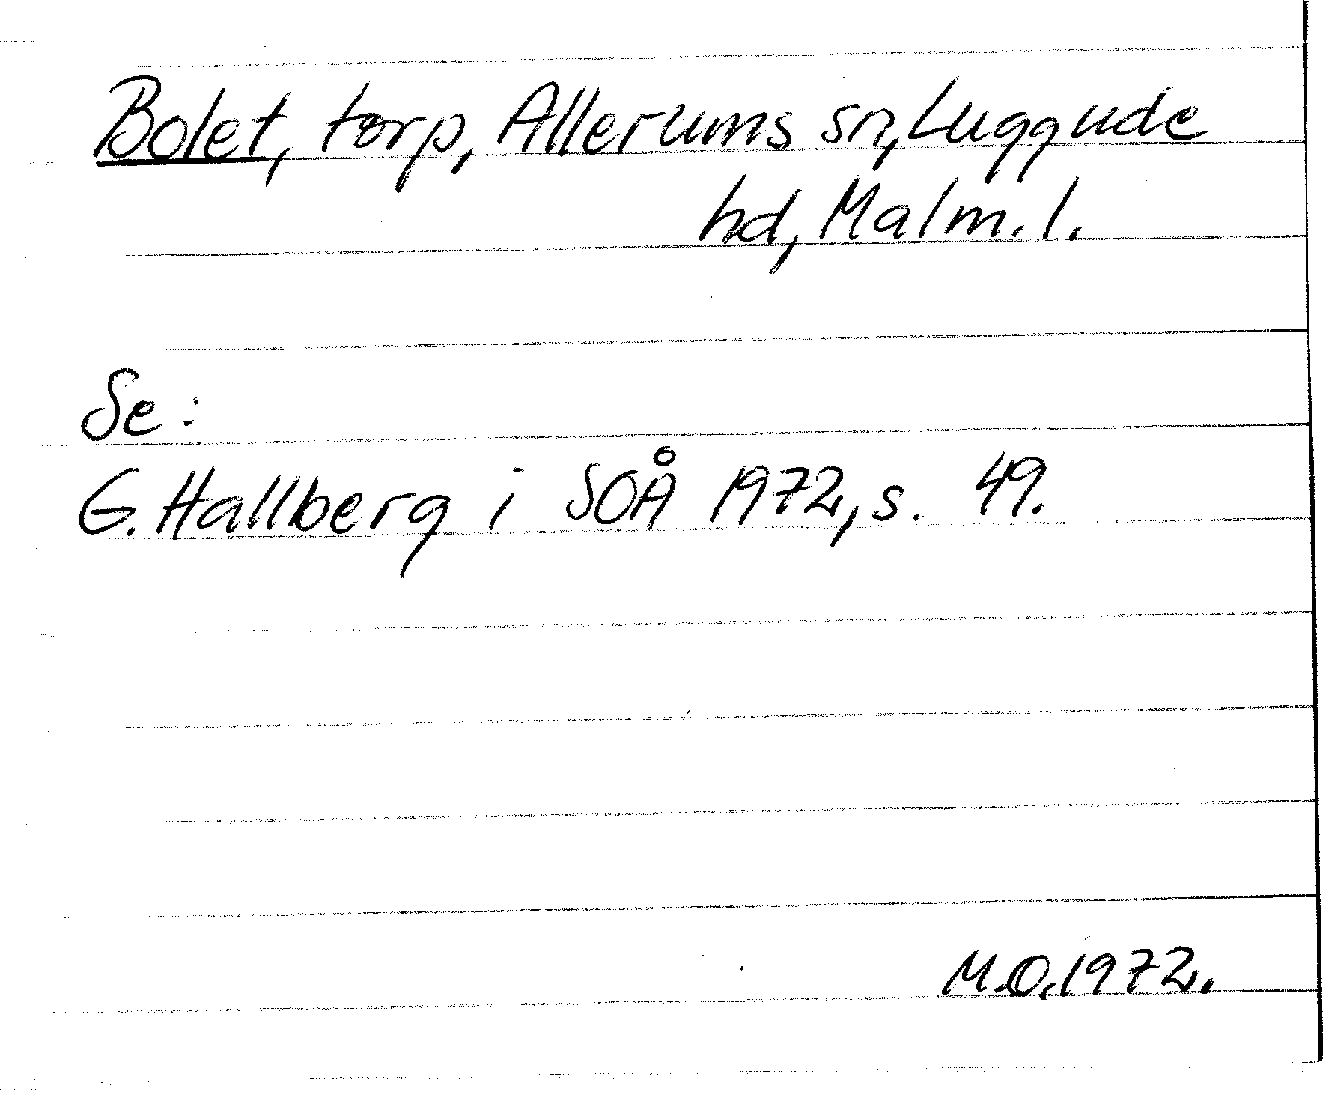 Bolet, torp, Allerums sn, Luggude
hd, Malm. l.
Se:
G. Hallberg i SOÅ 1972, s. 49.
M.O. 1972.